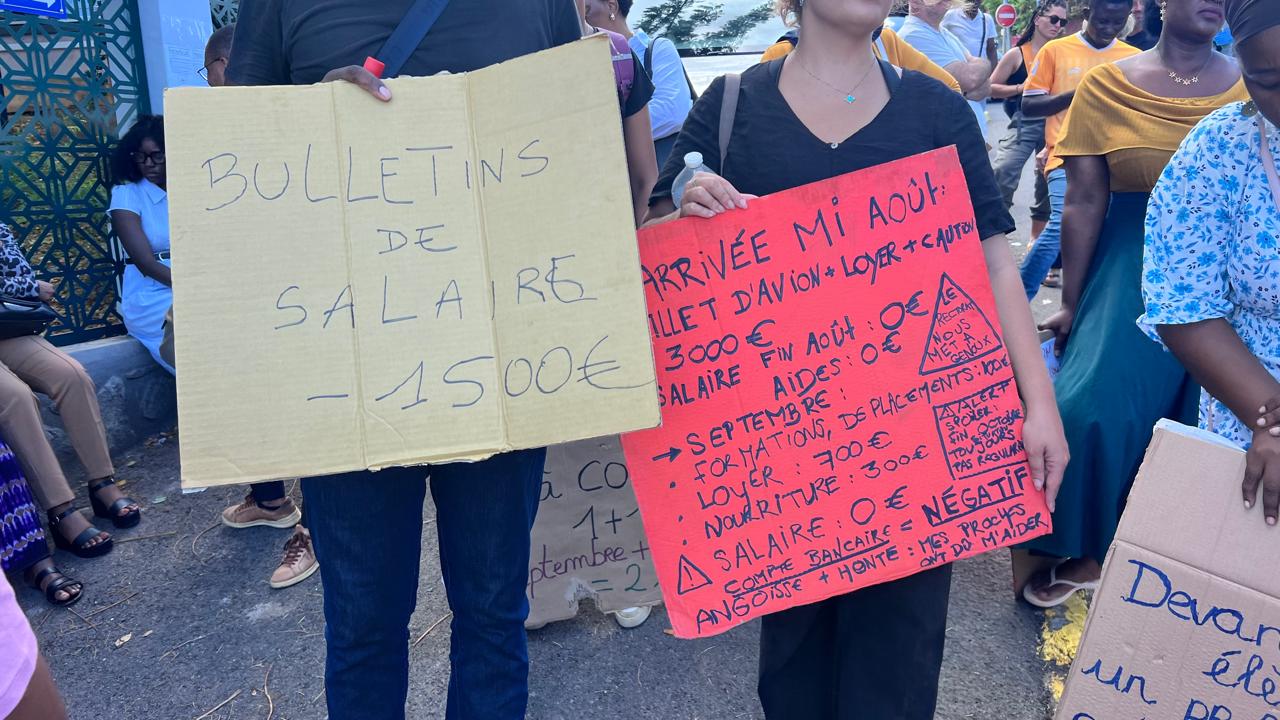 BULLETINS
DE
SALAIRE
- 1500€
ARRIVÉE MI AOÛT:
BILLET D'AVION + LOYER + CAUTION
3000€
SALAIRE FIN AOÛT : 0€
AIDES : 0€
→ SEPTEMBRE :
. FORMATIONS, DEPLACEMENTS: 100€
. LOYER : 700€
. NOURRITURE : 300€
SALAIRE : 0€
COMPTE BANCAIRE = NÉGATIF
ANGOISSE + HONTE : MES PROCHES
ONT DÛ M'AIDER
LE
RECTORAT
NOUS
MET À
GENOUX
ALERT
SPOILER :
FIN OCTOBRE
TOUJOURS
PAS
à CO
1+1
ptembre +
= 2
Devan
élè
un